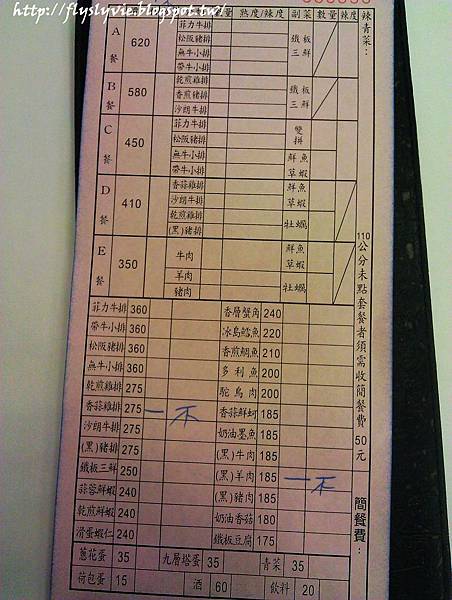 http://flyslyvie.blogspot.tw/
數量 熟度/辣度 副菜 數量 辣度
辣青菜：
A餐 620
菲力牛排
松阪豬排
無牛小排
帶牛小排
鐵板三鮮
B餐 580
乾煎雞排
香煎豬排
沙朗牛排
鐵板三鮮
C餐 450
菲力牛排
松阪豬排
無牛小排
帶牛小排
雙拼
鮮魚
草蝦
D餐 410
香蒜雞排
沙朗牛排
乾煎雞排
(黑)豬排
鮮魚
草蝦
牡蠣
E餐 350
牛肉
羊肉
豬肉
鮮魚
草蝦
牡蠣
110公分未點套餐者須需收簡餐費50元
簡餐費：
菲力牛排 360 香層蟹角 240
帶牛小排 360 冰島鱈魚 220
松阪豬排 360 香煎鯛魚 210
無牛小排 360 多利魚 200
乾煎雞排 275 鴕鳥肉 200
香蒜雞排 275 一不 香蒜鮮蚵 185
沙朗牛排 275 奶油墨魚 185
(黑)豬排 275 (黑)牛肉 185
鐵板三鮮 250 (黑)羊肉 185 一不
蒜蓉鮮蝦 240 (黑)豬肉 185
乾煎鮮蝦 240 奶油香菇 180
滑蛋蝦仁 240 鐵板豆腐 175
蔥花蛋 35 九層塔蛋 35 青菜 35
荷包蛋 15 酒 60 飲料 20